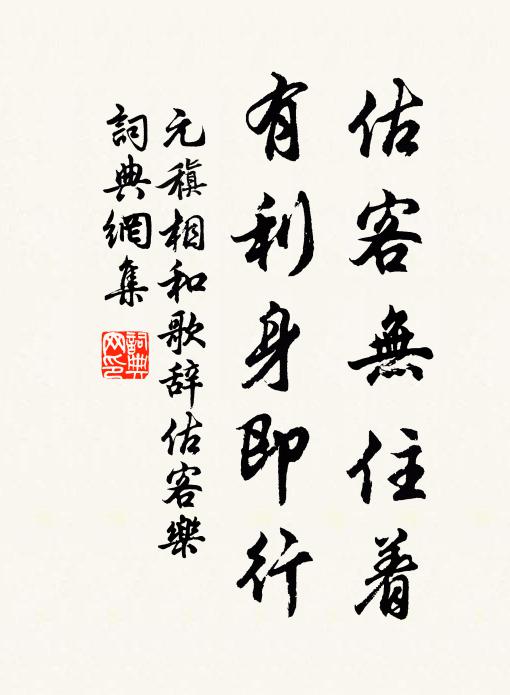 估客無住着
有利身即行
元稹相和歌辞估客樂
詞典網集
詞典網印